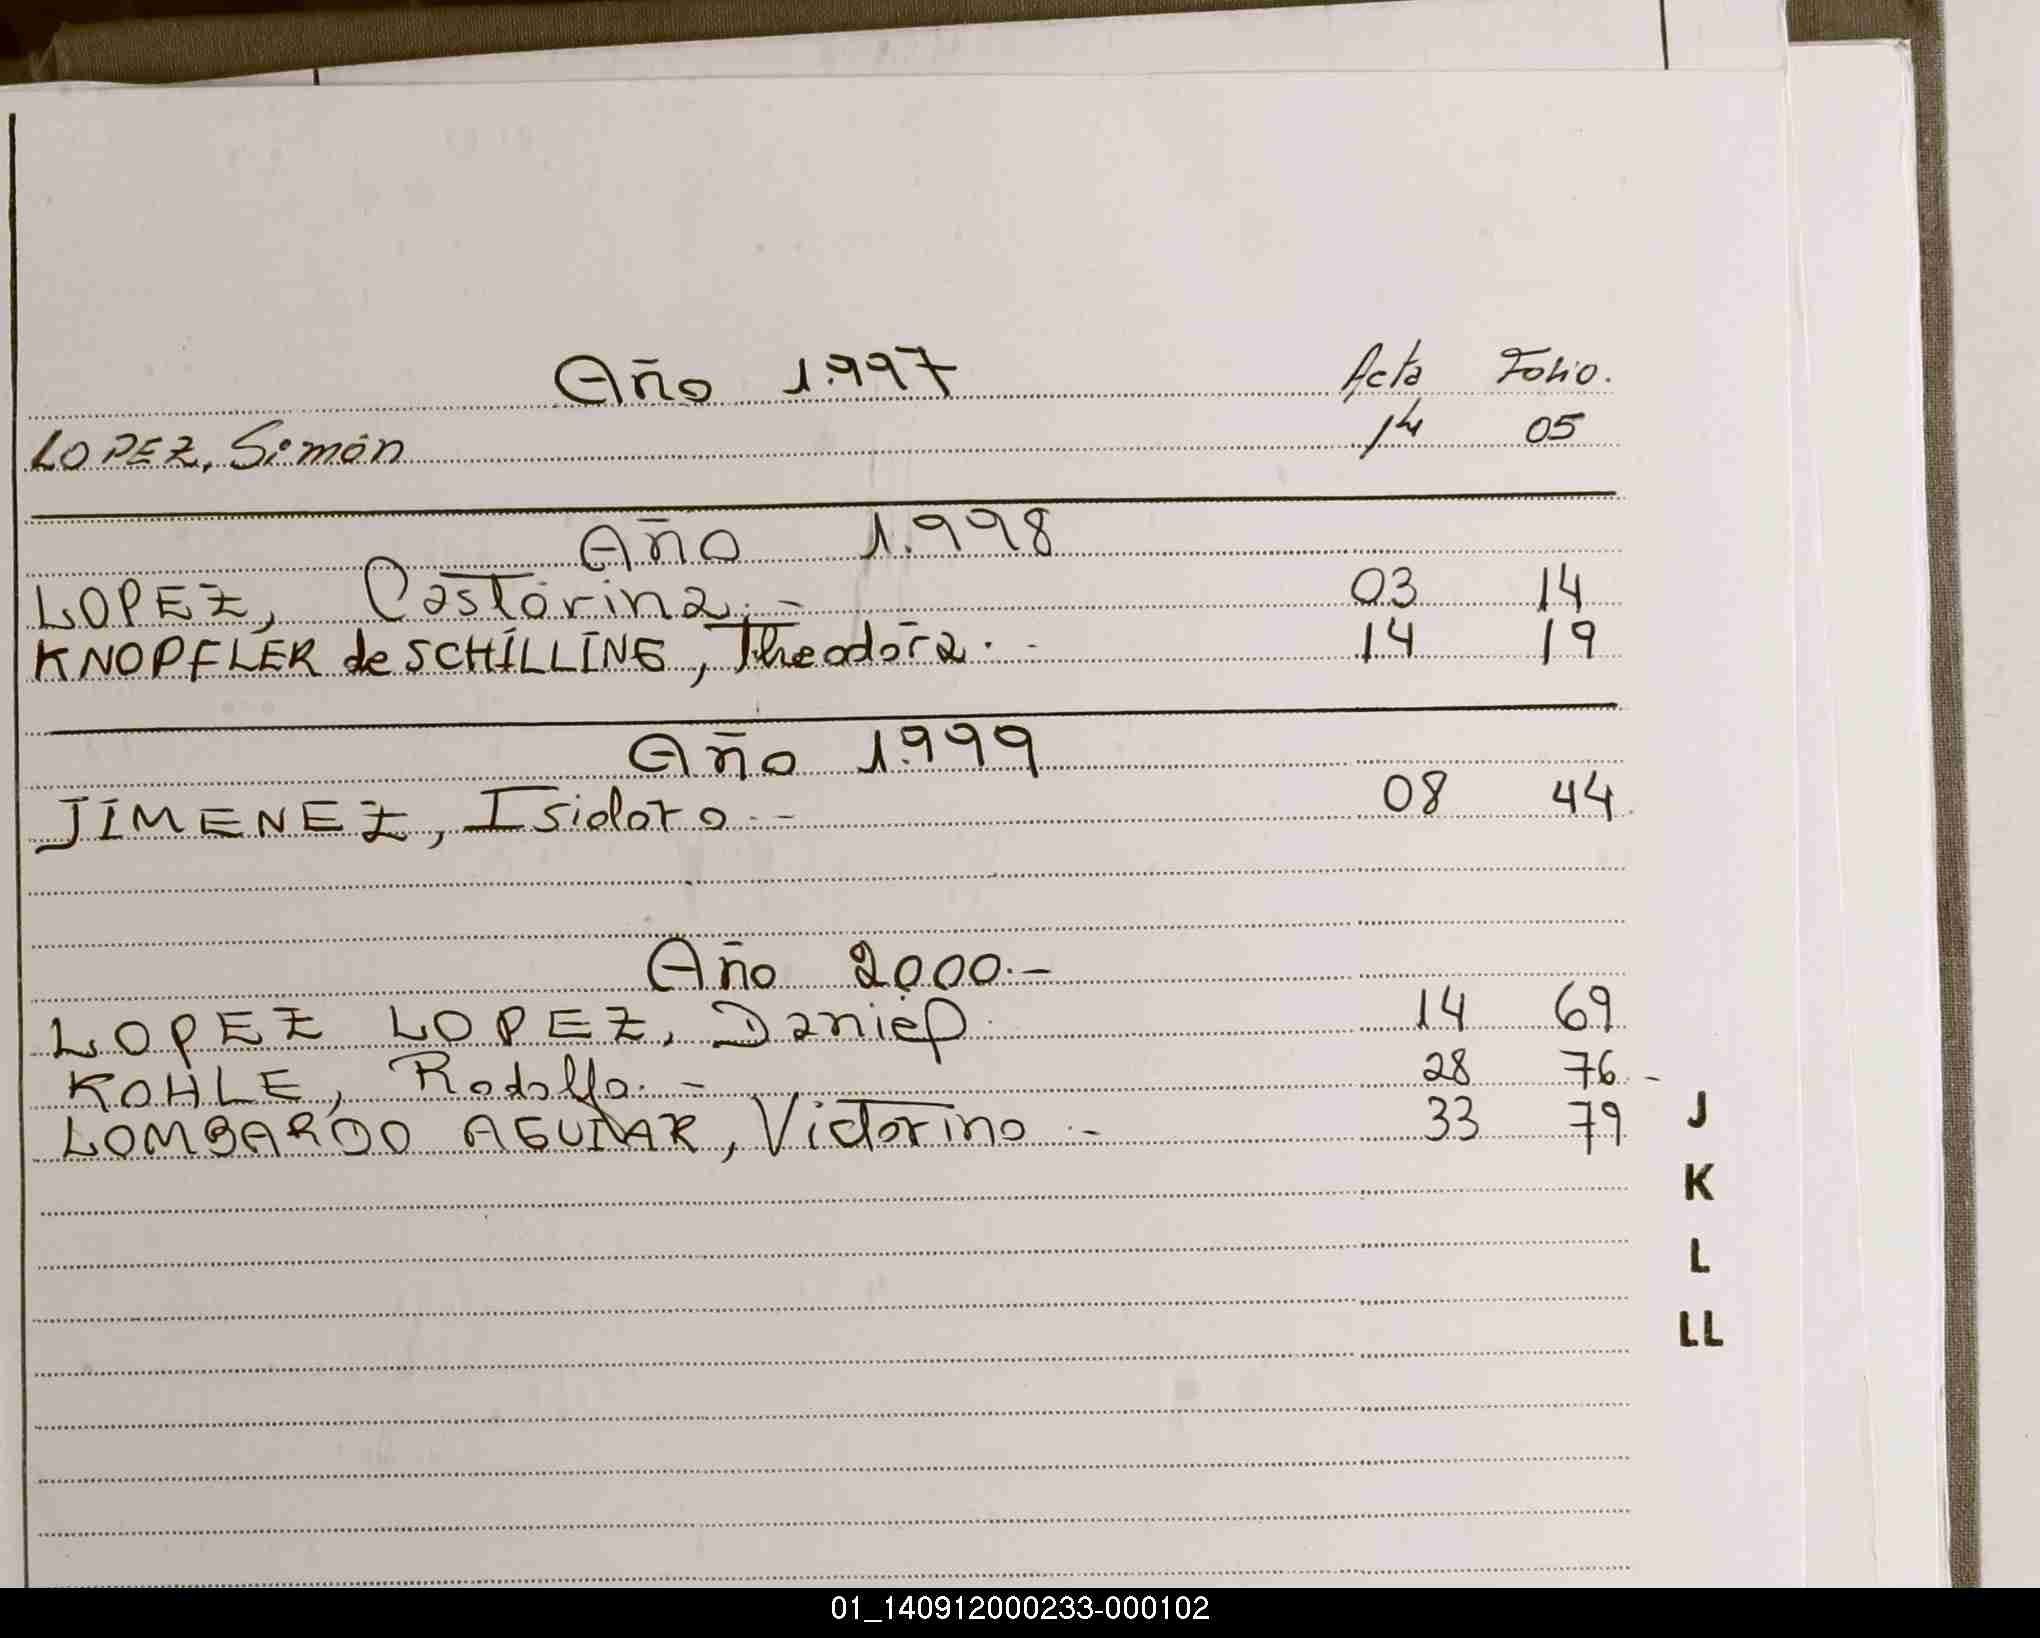 Año 1.997 Acta Folio.
LOPEZ, Simón 14 05
Año 1.998
LOPEZ, Castorina.- 03 14
KNOPFLER de SCHILLING, Theodora.- 14 19
Año 1.999
JIMENEZ, Isidoro.- 08 44
Año 2.000.-
LOPEZ LOPEZ, Daniel 14 69
KOHLE, Rodolfo.- 28 76-
LOMBARDO AGUIAR, Victorino.- 33 79
J
K
L
LL
01_140912000233-000102